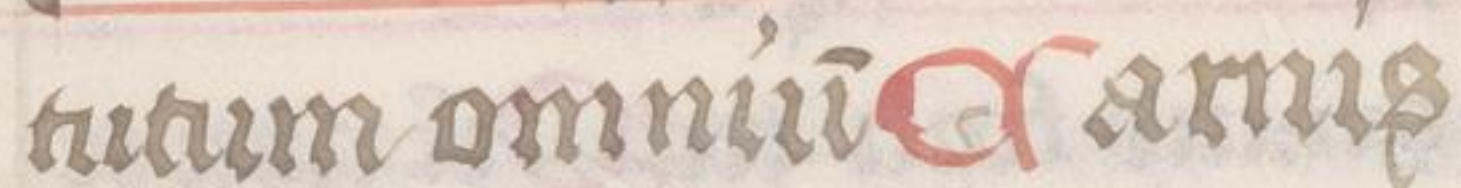 tutum omniū Carnis